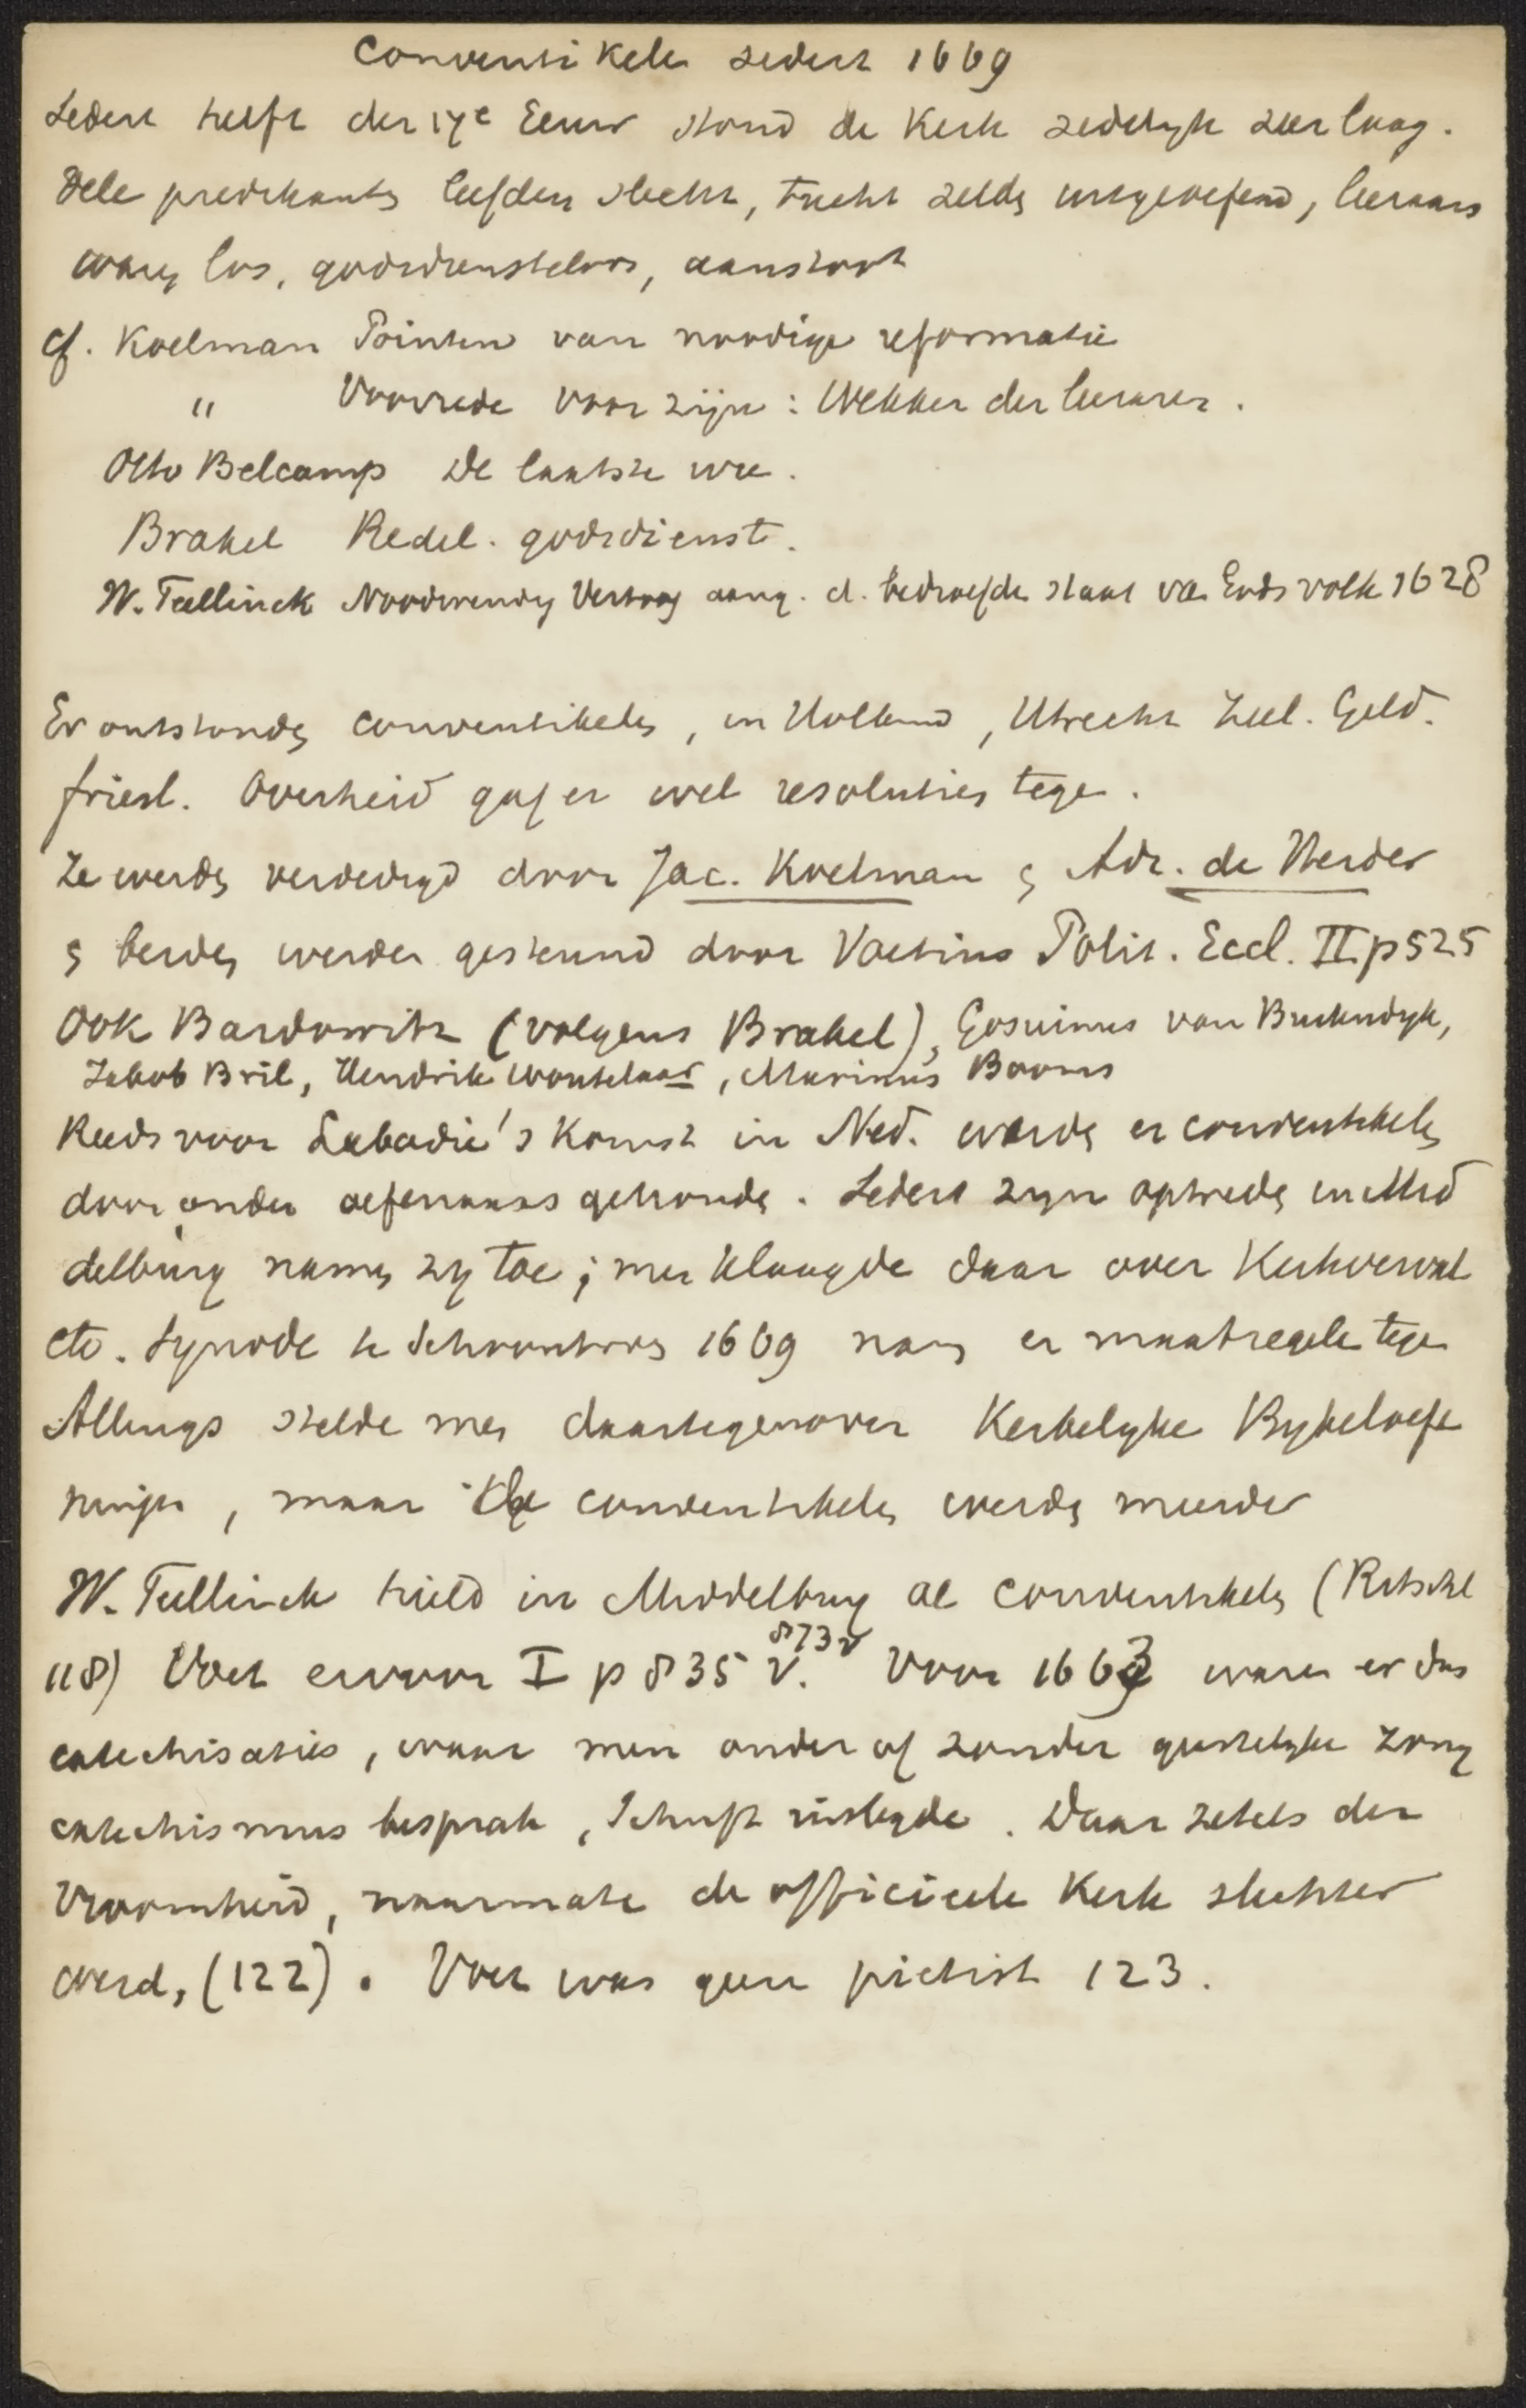 Conventikels sedert 1669
Sedert helft der 17e Eeuw stond de Kerk zedelyk zeer laag.
Vele predikants leefden slecht, tucht zelds uitgeoefend, leeraars
wars los, godsdiensteloos, aanstoot
cf. Koelman Pointen van noodige reformatie
" Voorrede voor zijn: Wekker der leeraren.
Otto Belcamp De laatste ure.
Brakel Redel. godsdienst.
W. Teellinck Noodwendig Vertoog aang. d. bedroefde staat van Gods volk 1628
Er ontstonds conventikels, in Holland, Utrecht Zeel. Geld.
Friesl. Overheid gaf er wel resoluties tege.
Ze werds verdedigd door Jac. Koelman & Adr. de Herder
& beides werden gesteund door Voetius Polit. Eccl. II p 525
Ook Bardowitz (volgens Brakel), Gosuinus van Buitendyk,
Jakob Bril, Hendrik Woutelaar, Marinus Booms
Reeds voor Labadie's Komst in Ned. werds er conventikels
door ander oefenaars gehouds. Sedert zyn optreds in Mid
delburg nams zy toe; men klaagde daar over Kerkverval
etc. Synode te Schoonhovs 1669 nam er maatregele tege
Allengs stelde men daartegenover Kerkelyke Bybeloefe
ninge, maar de conventikels werds meerder
W. Teellinck hield in Middelburg al conventikels (Ritschl
118) Voet ervoor I p 835 v. 873 v Voor 1663 waren er dus
catechisaties, waar men onder of zonder geestelyke zorg
catechismus besprak, Schrift uitlegde. Daar zetels der
Vroomheid, naarmate de officieele Kerk slechter
werd, (122). Voet was geen pietist 123.